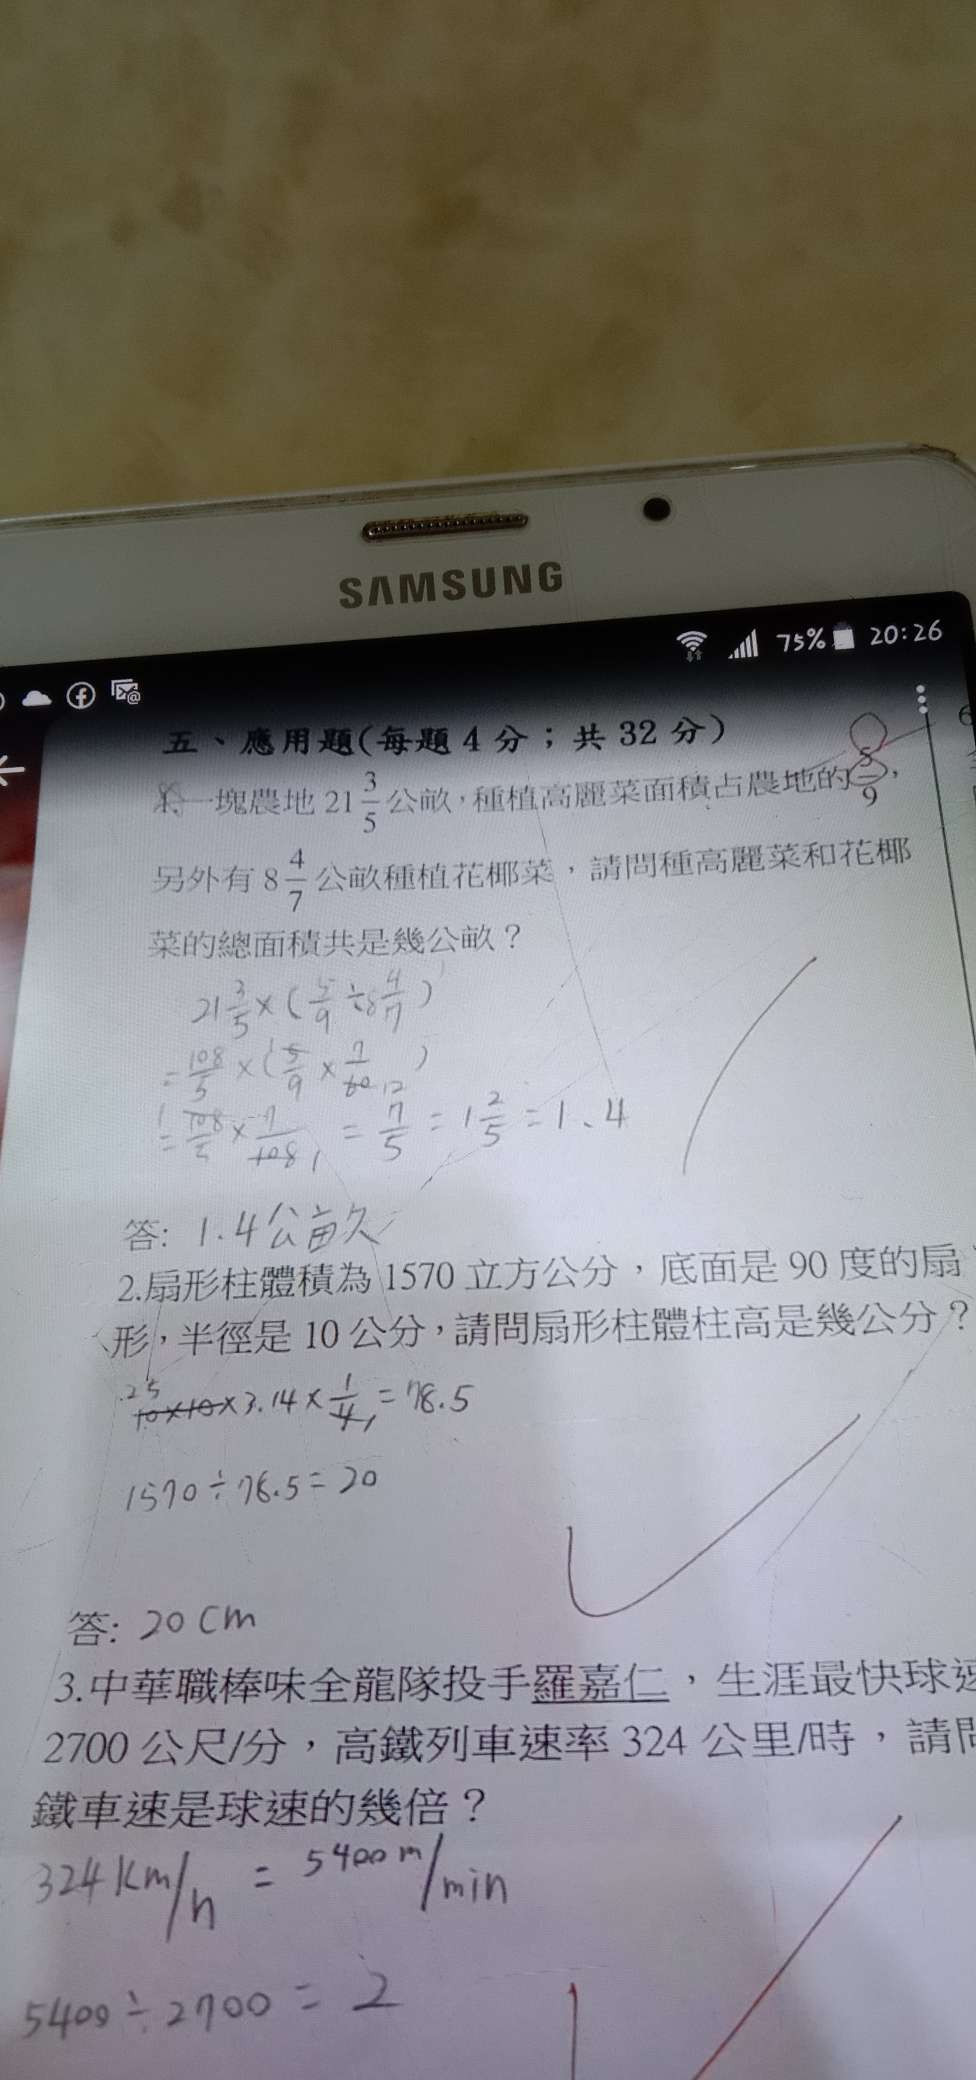 SAMSUNG
75% 20:26
五、應用題(每題4分；共32分)
一塊農地 21 3/5 公畝，種植高麗菜面積占農地的 5/9，
另外有 8 4/7 公畝種植花椰菜，請問種高麗菜和花椰
菜的總面積共是幾公畝？
21 3/5 × ( 5/9 ÷ 8 4/7 )
= 108/5 × ( 5/9 × 7/60 12 )
= 108/5 × 7/108 = 7/5 = 1 2/5 = 1.4
答: 1.4公畝
2.扇形柱體積為 1570 立方公分，底面是 90 度的扇
形，半徑是 10 公分，請問扇形柱體柱高是幾公分？
25
10×10×3.14×1/4 = 78.5
1570÷78.5=20
答: 20 cm
3.中華職棒味全龍隊投手羅嘉仁，生涯最快球速
2700 公尺/分，高鐵列車速率 324 公里/時，請問
鐵車速是球速的幾倍？
324 km/h = 5400 m/min
5400÷2700 = 2